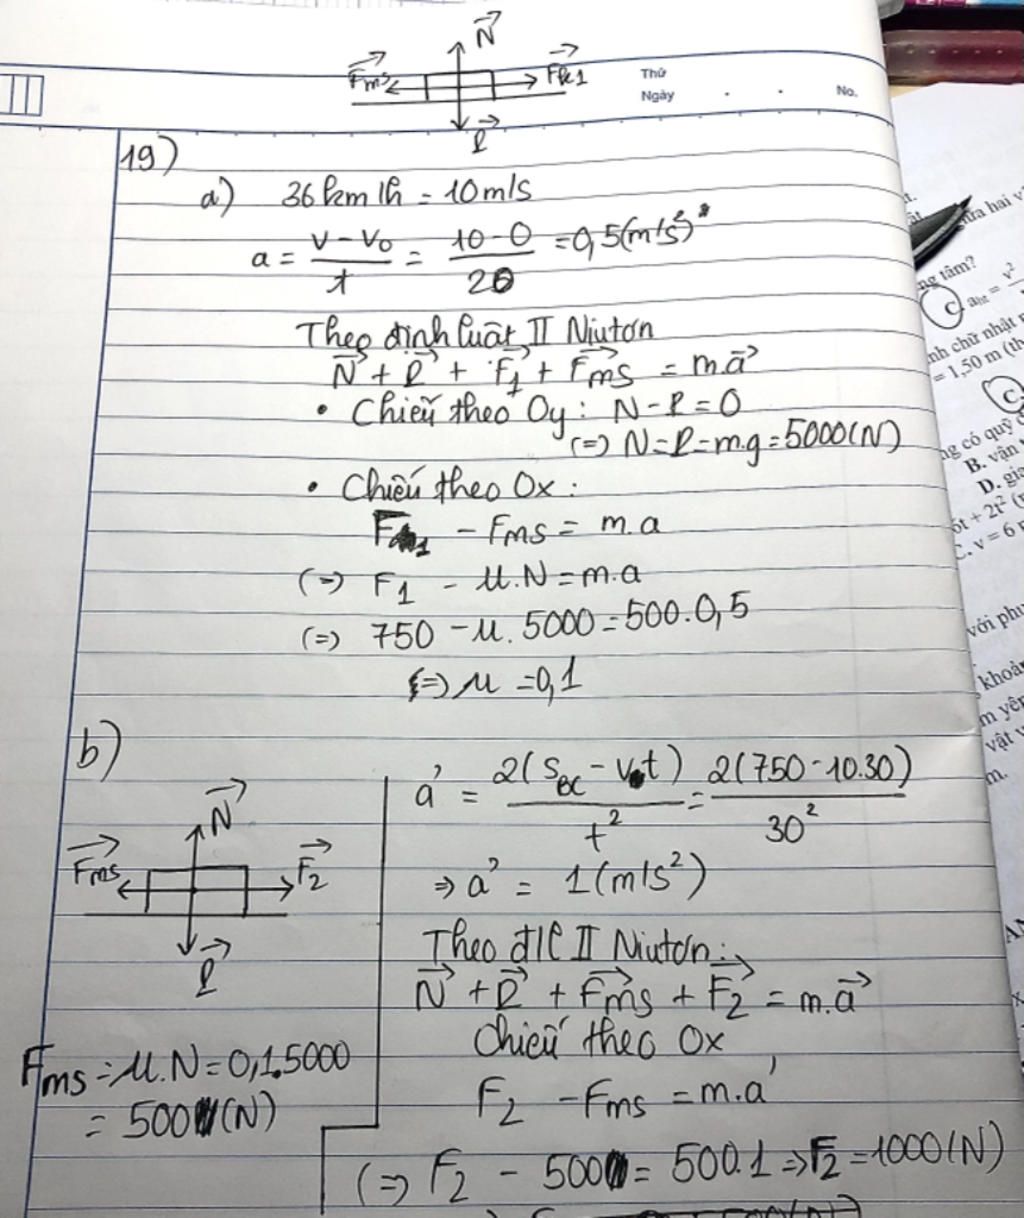 N
Fms Fk1
P
Thứ
Ngày . . No.
19)
a) 36km/h = 10m/s
a = v - v₀ / t = 10 - 0 / 20 = 0,5(m/s²)
Theo định luật II Niutơn
N + P + F₁ + Fms = m.a
• Chiếu theo Oy: N - P = 0
(=) N = P = m.g = 5000(N)
• Chiếu theo Ox:
F₁ - Fms = m.a
(=) F₁ - μ.N = m.a
(=) 750 - μ.5000 = 500.0,5
(=) μ = 0,1
b)
N
Fms F₂
P
Fms = μ.N = 0,1.5000
= 500(N)
a' = 2(S_BC - v₀t) / t² = 2(750 - 10.30) / 30²
⇒ a' = 1(m/s²)
Theo đ/l II Niutơn:
N + P + Fms + F₂ = m.a
Chiếu theo Ox
F₂ - Fms = m.a'
(=) F₂ - 500 = 500.1 ⇒ F₂ = 1000(N)
ữa hai v
ng tâm?
C. aht = v²
nh chữ nhật
= 1,50 m (th
C
ng có quỹ
B. vận
D. gia
6t + 2t²
C. v = 6
với phư
khoả
m yên
vật v
m.